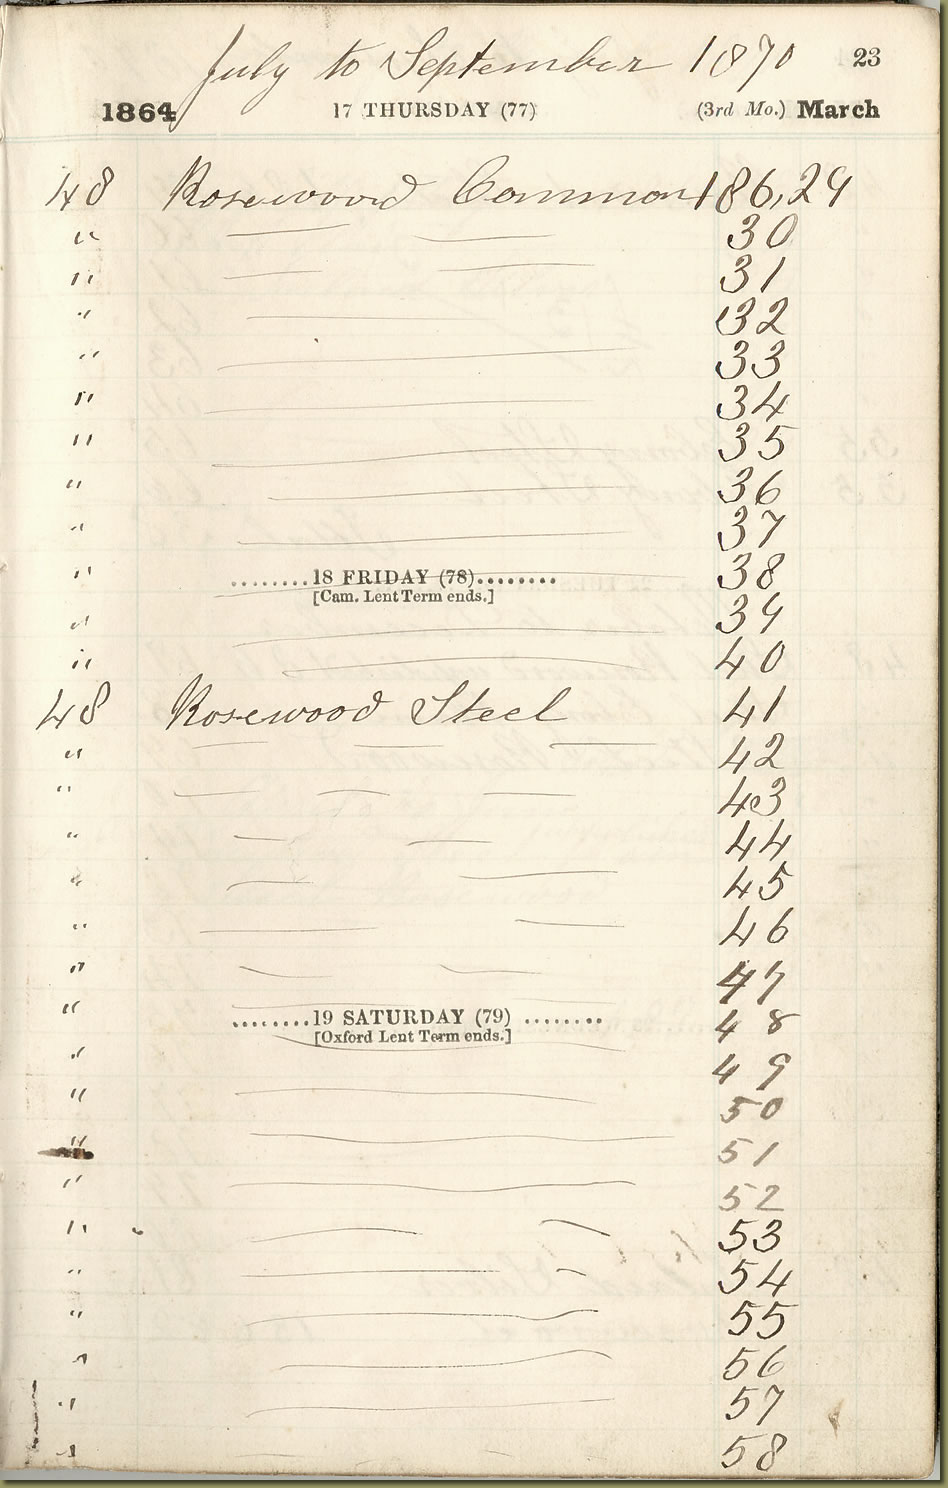 July to September 1870 23
1864 17 THURSDAY (77) (3rd Mo.) March
48 Rosewood Common 186,29
" 30
" 31
" 32
" 33
" 34
" 35
" 36
" 37
" ........18 FRIDAY (78)........ 38
[Cam. Lent Term ends.]
" 39
" 40
48 Rosewood Steel 41
" 42
" 43
" 44
" 45
" 46
" 47
" ........19 SATURDAY (79) ........ 48
[Oxford Lent Term ends.]
" 49
" 50
" 51
" 52
" 53
" 54
" 55
" 56
" 57
" 58